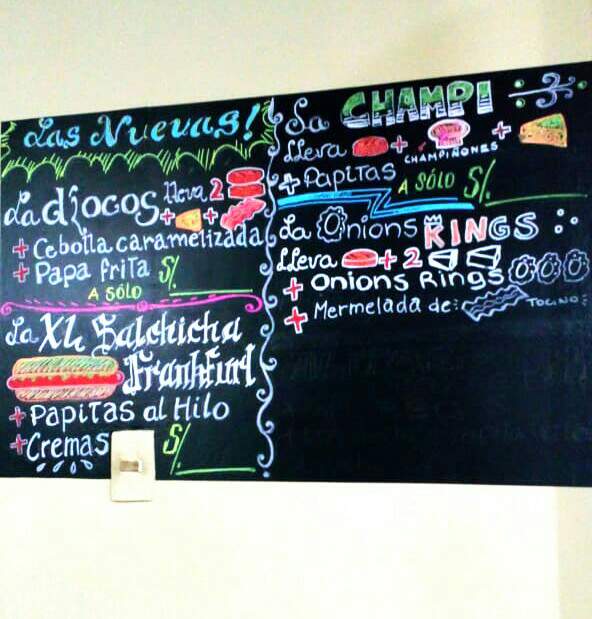 Las Nuevas!
La djocos lleva 2
+ +
+ Cebolla caramelizada
+ Papa frita S/.
A SÓLO
La XL Salchicha
Frankfurt
+ PAPITAS al Hilo
+ Cremas S/.
La CHAMPI
Lleva + CHAMPIÑONES +
+ PAPITAS A SÓLO S/.
La Onions RINGS
Lleva + 2
+ Onions Rings
+ Mermelada de: TOCINO